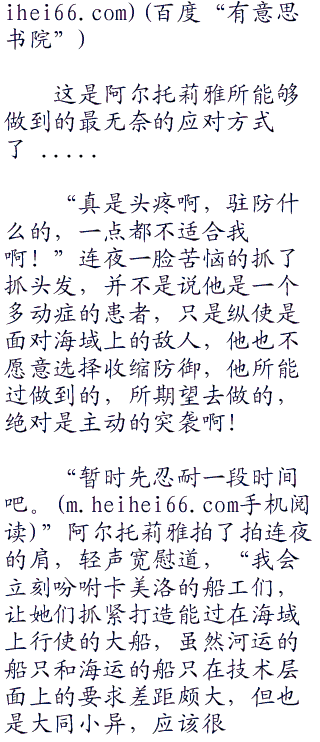 ihei66.com)(百度“有意思
书院”)
这是阿尔托莉雅所能够
做到的最无奈的应对方式
了 .....
“真是头疼啊，驻防什
么的，一点都不适合我
啊！”连夜一脸苦恼的抓了
抓头发，并不是说他是一个
多动症的患者，只是纵使是
面对海域上的敌人，他也不
愿意选择收缩防御，他所能
过做到的，所期望去做的，
绝对是主动的突袭啊！
“暂时先忍耐一段时间
吧。(m.heihei66.com手机阅
读)”阿尔托莉雅拍了拍连夜
的肩，轻声宽慰道，“我会
立刻吩咐卡美洛的船工们，
让她们抓紧打造能过在海域
上行使的大船，虽然河运的
船只和海运的船只在技术层
面上的要求差距颇大，但也
是大同小异，应该很